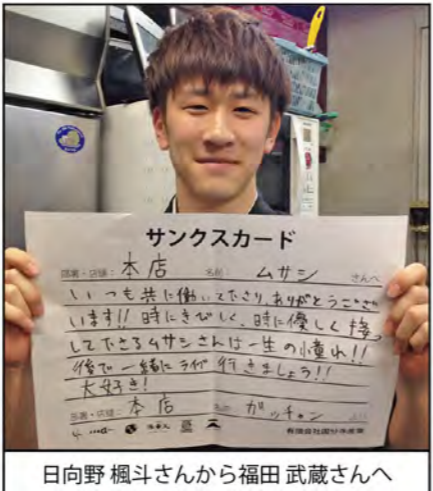 サンクスカード
部署・店舗: 本店 名前: ムサシ さんへ
いつも共に働いて下さり、ありがとうござ
います!! 時にきびしく、時に優しく接っ
して下さるムサシさんは一生の憧れ!!
後で一緒にライブ行きましょう!!
大好き!
部署・店舗: 本店 名前: ガッチャン より
有限会社国分寺産業
日向野 楓斗さんから福田 武蔵さんへ